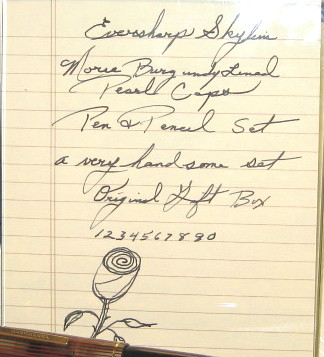 Eversharp Skyline
Moire Burgundy Lined
Pearl Caps
Pen & Pencil Set
a very handsome set
Original Gift Box
1234567890